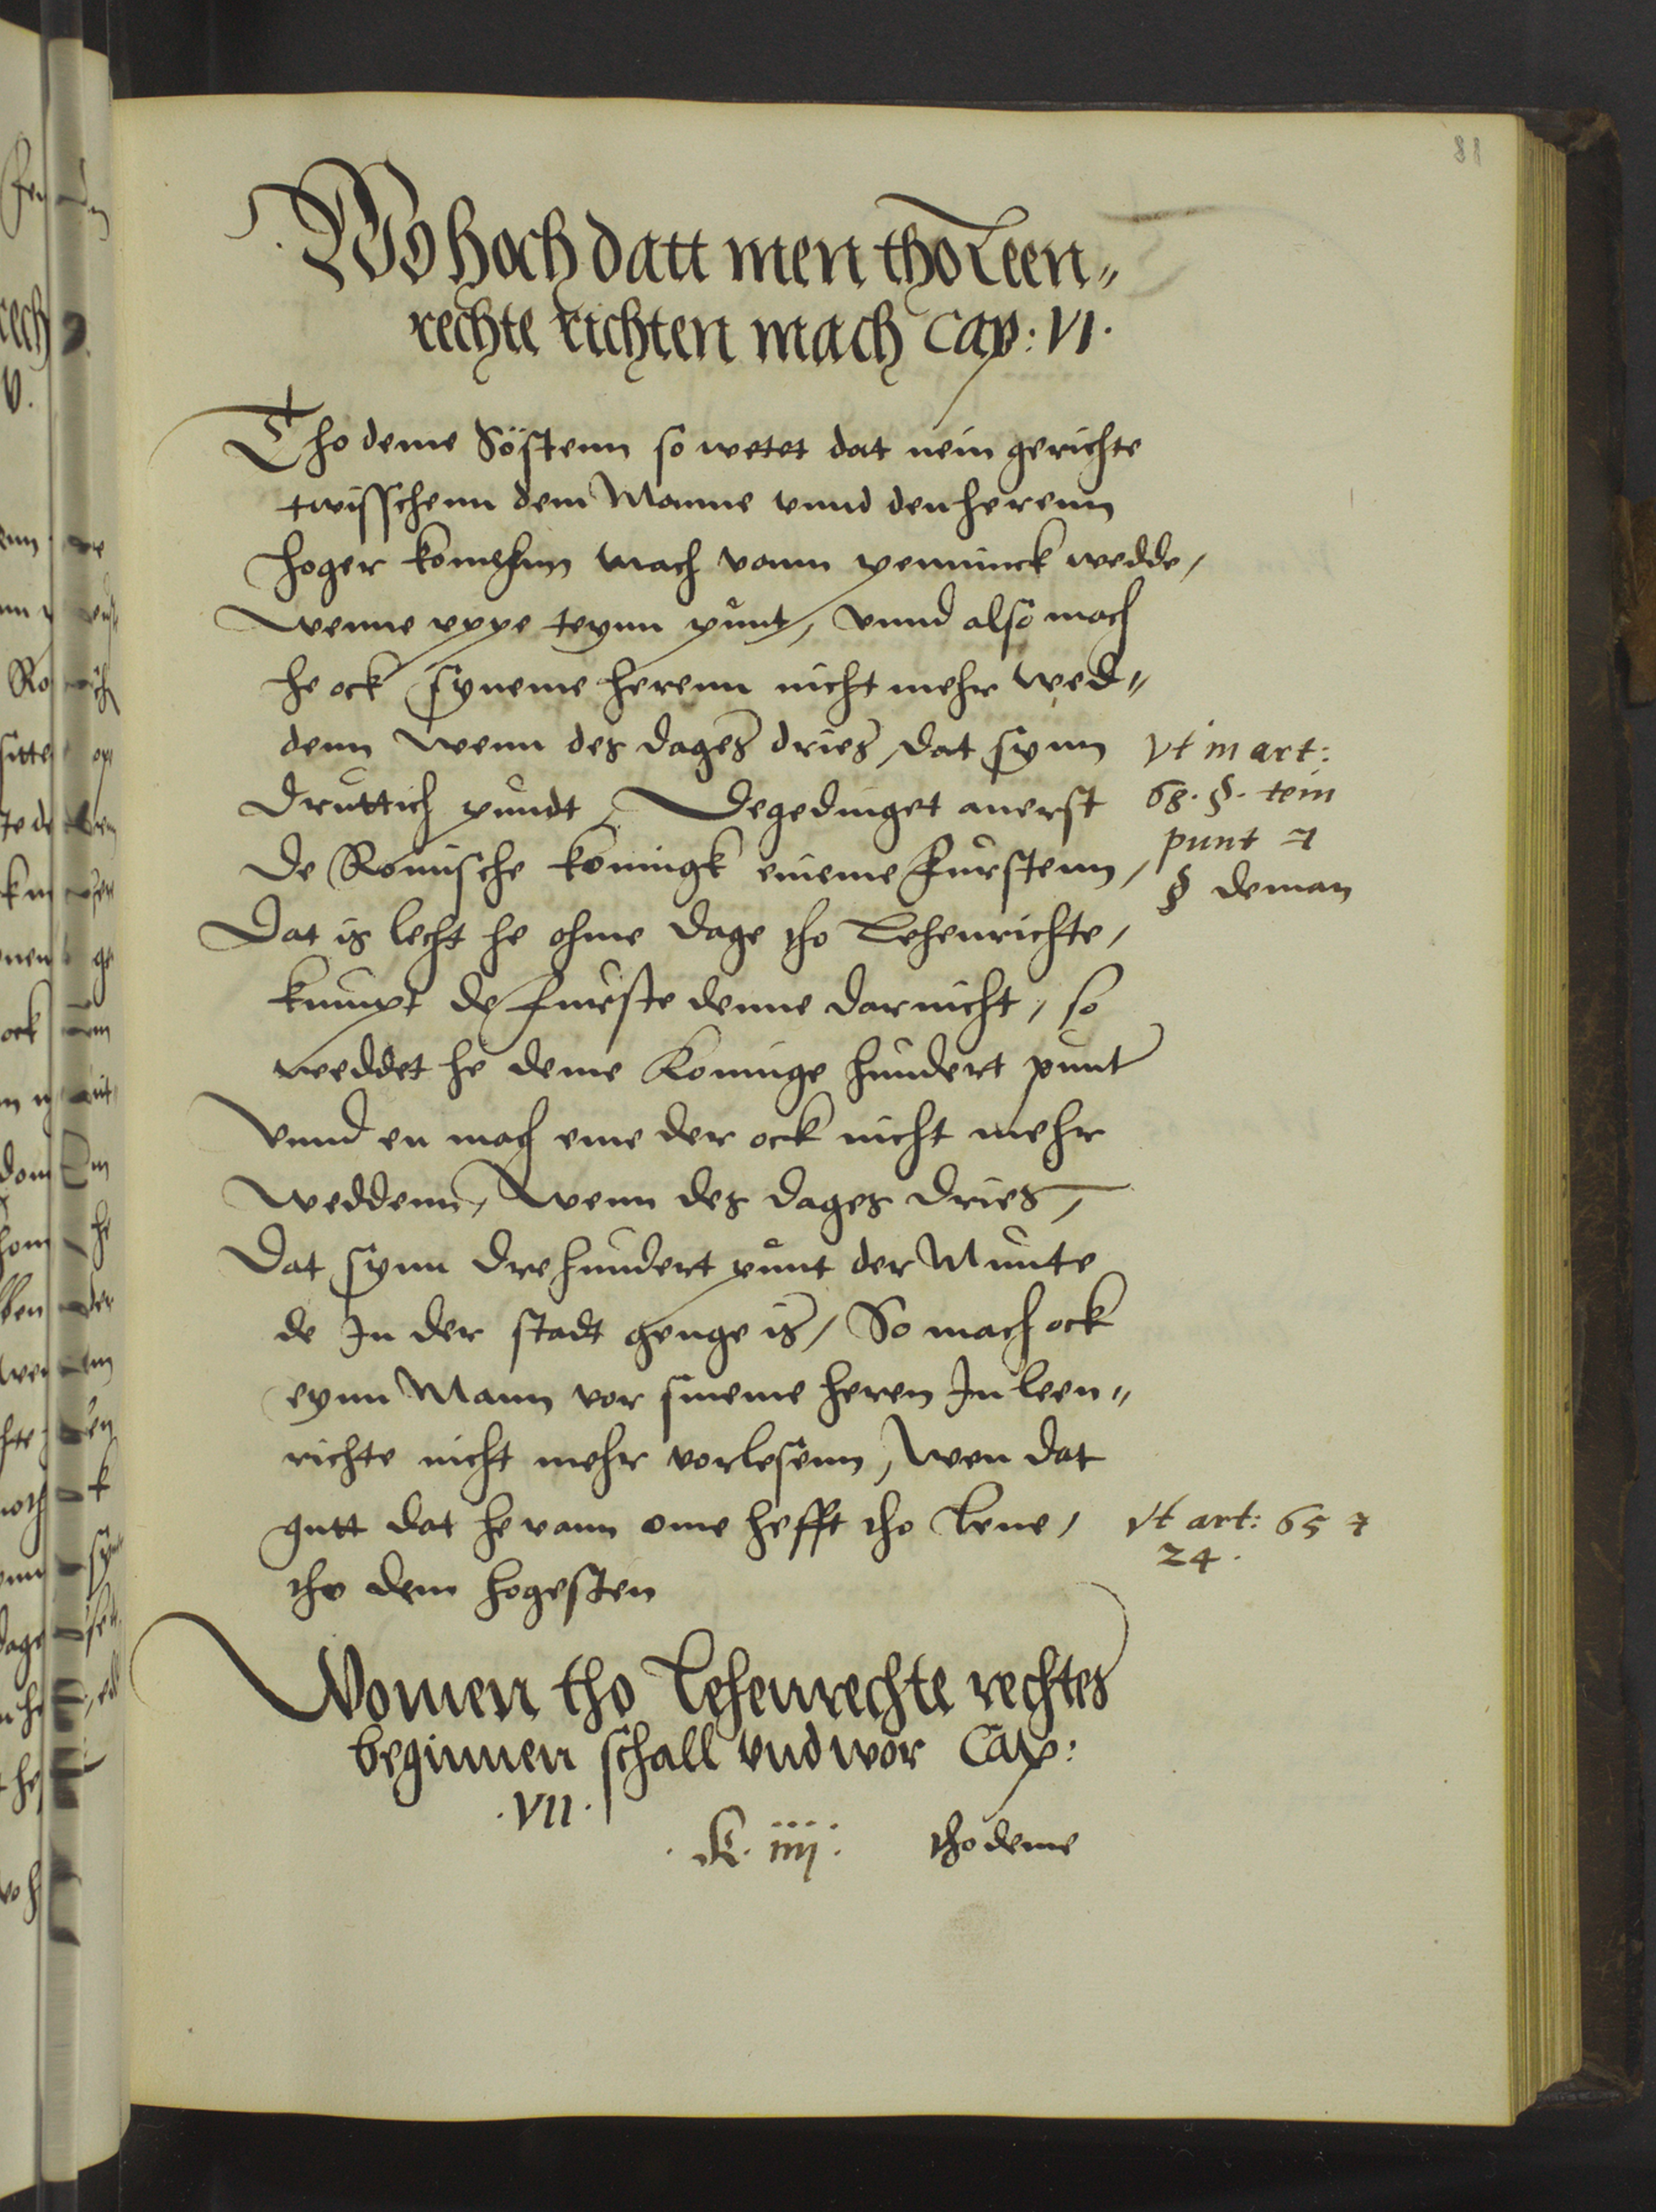 81
Wo hoch datt men tho Leen„
rechte richten mach Cap: VI.
Tho deme Söstenn so wetet dat nein gerichte
twisschenn dem Manne vnnd den herenn
hoger komenn mach vann penninck wedde,
wenne vppe teynn punt, vnnd also mach
he ock syneme herenn nicht mehr wed„
denn wenn des dages dries, dat synn
druttich pundt, Degedinget auerst
de Romische koningk eineme Furstenn,
Dat is lecht he ohme dage tho Lehenrichte,
kumpt de Furste denne dar nicht, so
weddet he deme Koninge hundert punt
Vnnd en mach eme der ock nicht mehr
weddenn, Wenn des dages dries,
Dat synn drehundert punt der Munte
de In der stadt genge is, So mach ock
eynn Mann vor sineme heren In leen„
richte nicht mehr vorlesenn, Wen dat
gutt dat he vann ome hefft tho Lene,
tho dem hogesten
Vt in art:
68. §. tein
punt &
§ deman
Vt art: 65 &
24.
Women tho Lehenrechte rechtes
beginnen schall vnd wor Cap:
.VII.
. K. iiij. tho deme